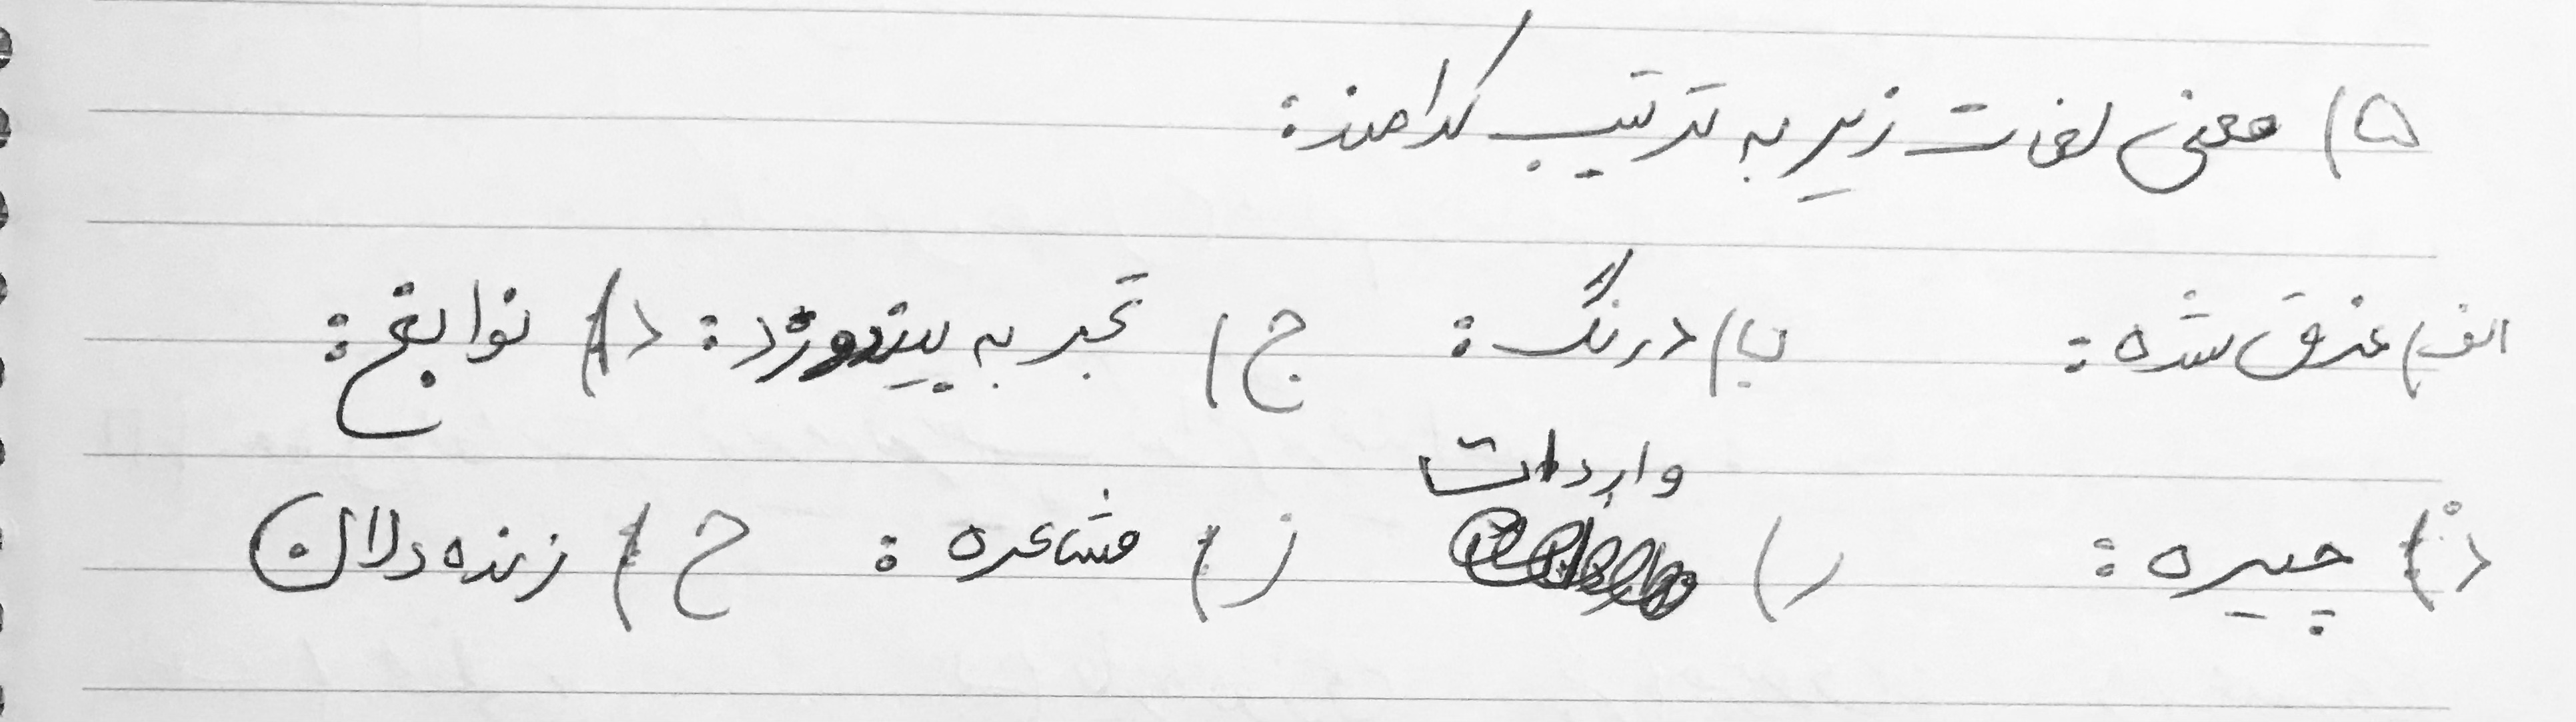 ۵) معنی لغات زیر به ترتیب کدامند:
الف) غرق شده: ب) درنگ: ج) تجربه بیندوزد: د) نوابغ:
واردات
ذ) چیره: ر) ز) مشاعره: ح) زنده دلان